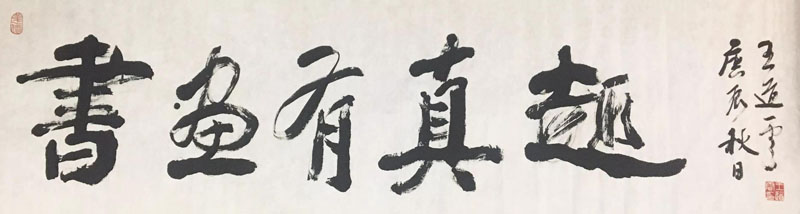 書畫有真趣
庚辰秋日
王道雲